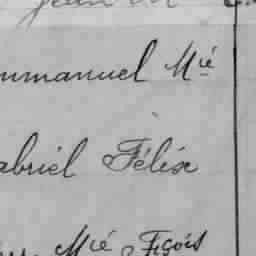 mmanuel Mié
abriel Félix
Mié Fçois